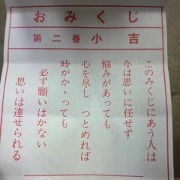 おみくじ
第二番小吉
このみくじにあう人は
今は思いに任せず
悩みがあっても
心を尽し つとめれば
時がかゝっても
必ず願いはかない
思いは達せられる